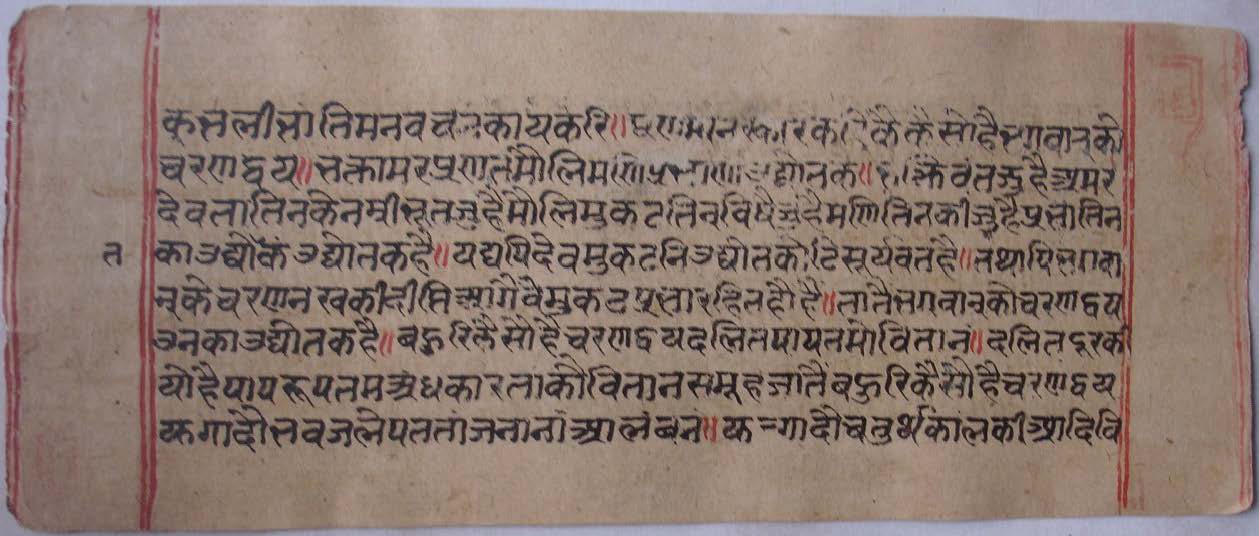 कभलीभांतिमनवचनकायकरि॥प्रणामनमस्कारकरिकैकैसोहैभगवान्को
चरणद्वय॥भक्तामरप्रणतमौलिमणिप्रभाणाउद्योतक॥भक्तिवंतजुहैअमर
देवतातिनकेनम्रीभूतजुहैमौलिमुकटतिनविषैजुहैमणितिनकीजुहैप्रभातिन
त काउद्योकउद्योतकहै॥यद्यपिदेवमुकटनिउद्योतकोटिसूर्यवतहै॥तथापिभगवा
न्केचरणनखकीदीप्तिआगैवैमुकटप्रभारहितहौहै॥तातैभगवान्कोचरणद्वय
उनकाउद्योतकहै॥बहुरिकैसोहैचरणद्वयदलितपापतमोवितानं॥दलितदूरकी
योहैपापरूपतमअंधकारताकौवितानसमूहजातैबहुरिकैसौहैचरणद्वय
युगादौभवजलेपततांजनानांआलंबनं॥युगादौचतुर्थकालकीआदिवि